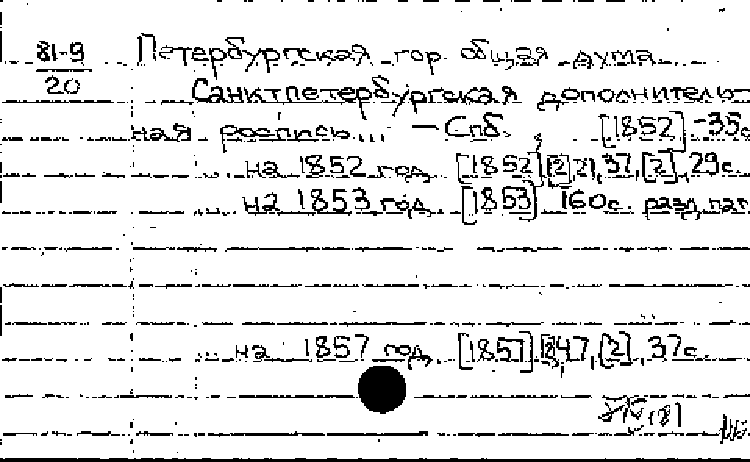 81-9
20
Петербургская гор. общая дума
Санктпетербургская дополнитель-
ная роспись... – Спб., [1852] -35с
... на 1852 год. [1852] [2], 21, 37, [2], 29с.
... на 1853 год. [1853]. 160с. разд. паг
... на 1857 год. [1857]. 47, [2], 37с.